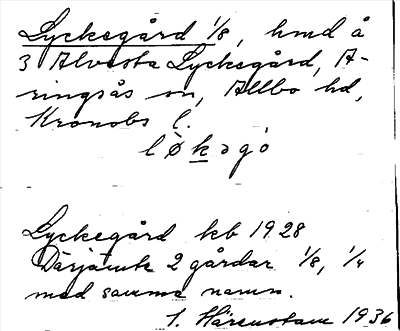 Lyckegård 1/8, hmd å
3 Alvesta Lyckegård, A-
ringsås sn, Allbo hd,
Kronobs l.
løkəgó
Lyckegård kb 1928
Därjämte 2 gårdar 1/8, 1/4
med samma namn.
1936